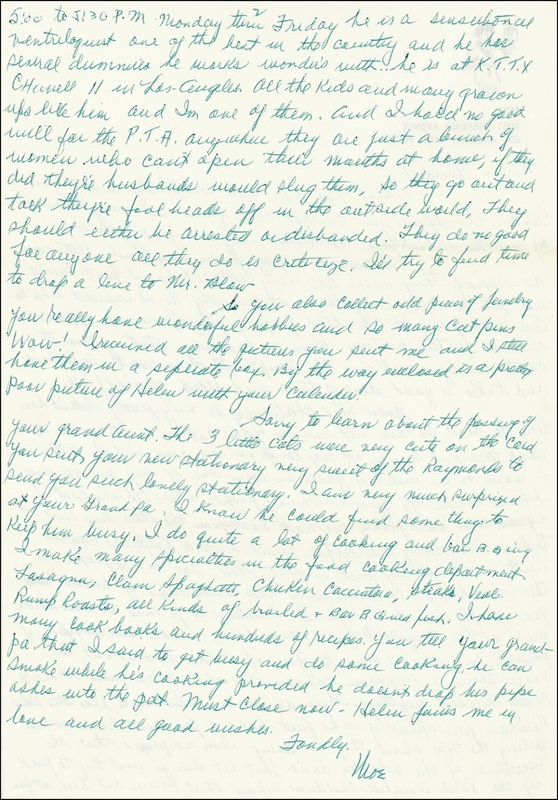 5:00 to 5:30 P.M. Monday thru Friday he is a sensational
ventriloquist one of the best in the country and he has
several dummies he works wonders with... he is at K.T.T.V
Channell 11 in Los-Angeles. All the kids and many grown
ups like him and I'm one of them. And I hold no good
will for the P.T.A. anywhere they are just a bunch of
women who can't open their mouths at home, if they
did they're husbands would slug them, so they go out and
talk they're fool heads off in the outside world, They
should either be arrested or disbanded. They do no good
for anyone all they do is criticize. I'll try to find time
to drop a line to Mr. Blow
So you also collect odd pieces of Jewelry
you really have wonderful hobbies and so many Cat pins
Wow! I received all the pictures you sent me and I still
have them in a seperate box. By the way enclosed is a pretty
poor picture of Helen with your Calender.
Sorry to learn about the passing of
your grand Aunt. The 3 little cats were very cute on the card
you sent, your new stationary very sweet of the Raymonds to
send you such lovely stationary. I am very much surprised
at your Grand pa. I know he could find some thing to
keep him busy. I do quite a lot of cooking and bar B. Q ing
I make many specialties in the food cooking department
Lasagna, Clam Spaghetti, Chicken Cacciatora, Steaks, Veal
Rump Roasts, all kinds of broiled + Bar B Qued fish. I have
many cook books and hundreds of recipes. You tell your grand-
pa that I said to get busy and do some cooking, he can
smoke while he's cooking provided he doesn't drop his pipe
ashes into the pot. Must close now - Helen joins me in
love and all good wishes.
Fondly.
Moe